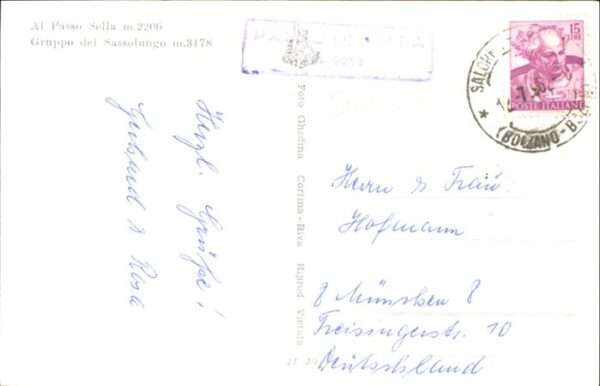 Al Passo Sella m.2206
Gruppo del Sassolungo m.3178
Herzl. Grüße!
Gerhard & Rosa
Foto Ghedina Cortina - Riva Riprod Vietate
15
LIRE
POSTE ITALIANE
BOLZANO - B
Herrn & Frau:
Hofmann
8 München 8
Freisingerstr. 10
Deutschland